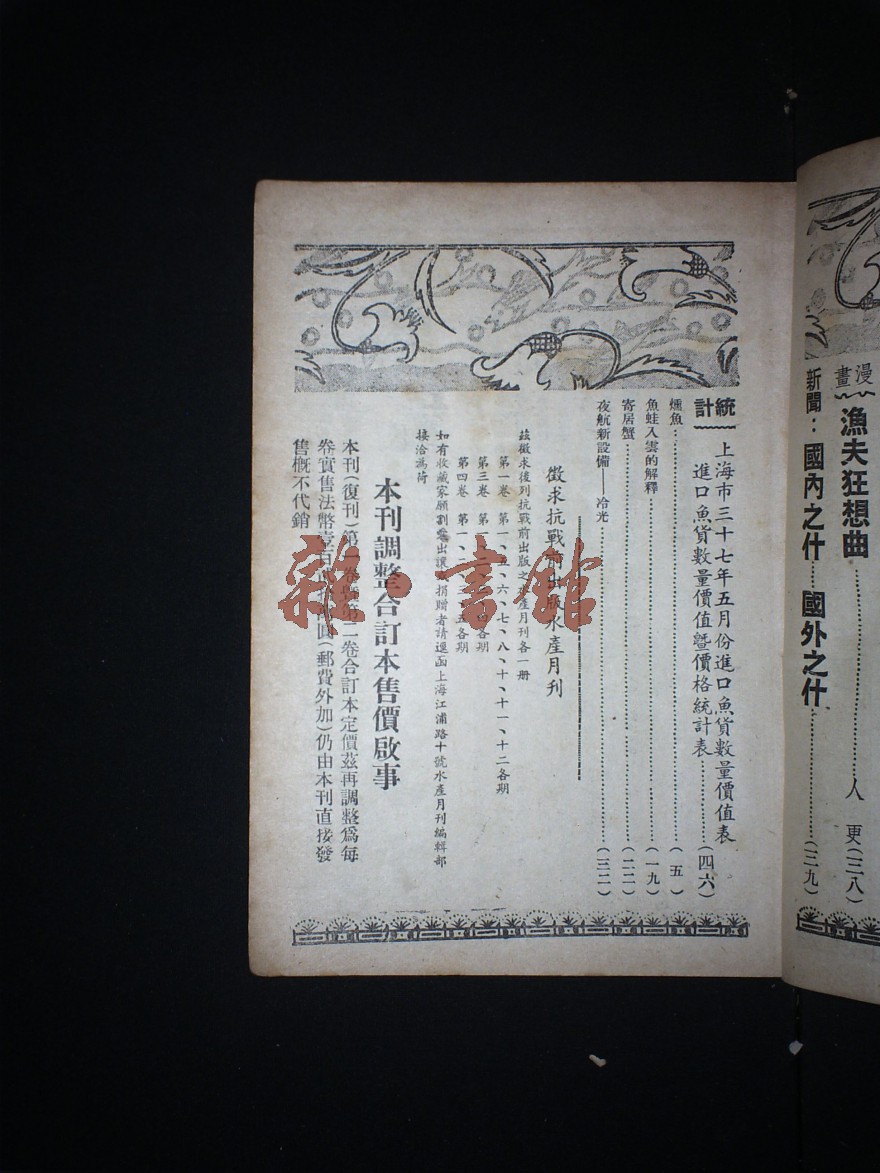 漫畫
漁夫狂想曲……人 更(三八)
新聞：國內之什……國外之什……(三九)
統計
上海市三十七年五月份進口魚貨數量價值表
進口魚貨數量價值暨價格統計表……(四六)
燻魚……(五)
魚蛙入雲的解釋……(一九)
寄居蟹……(二二)
夜航新設備——冷光……(三二)
徵求抗戰前出版水產月刊
茲徵求後列抗戰前出版之水產月刊各一册
第一卷 第一、五、六、七、八、十、十一、十二各期
第三卷 第一、各期
第四卷 第一、二、三、五各期
如有收藏家願割愛出讓捐贈者請逕函上海江浦路十號水產月刊編輯部
接洽爲荷
本刊調整合訂本售價啟事
本刊(復刊)第一卷第二卷合訂本定價茲再調整爲每
卷實售法幣壹百圓(郵費外加)仍由本刊直接發
售概不代銷
雜·書館